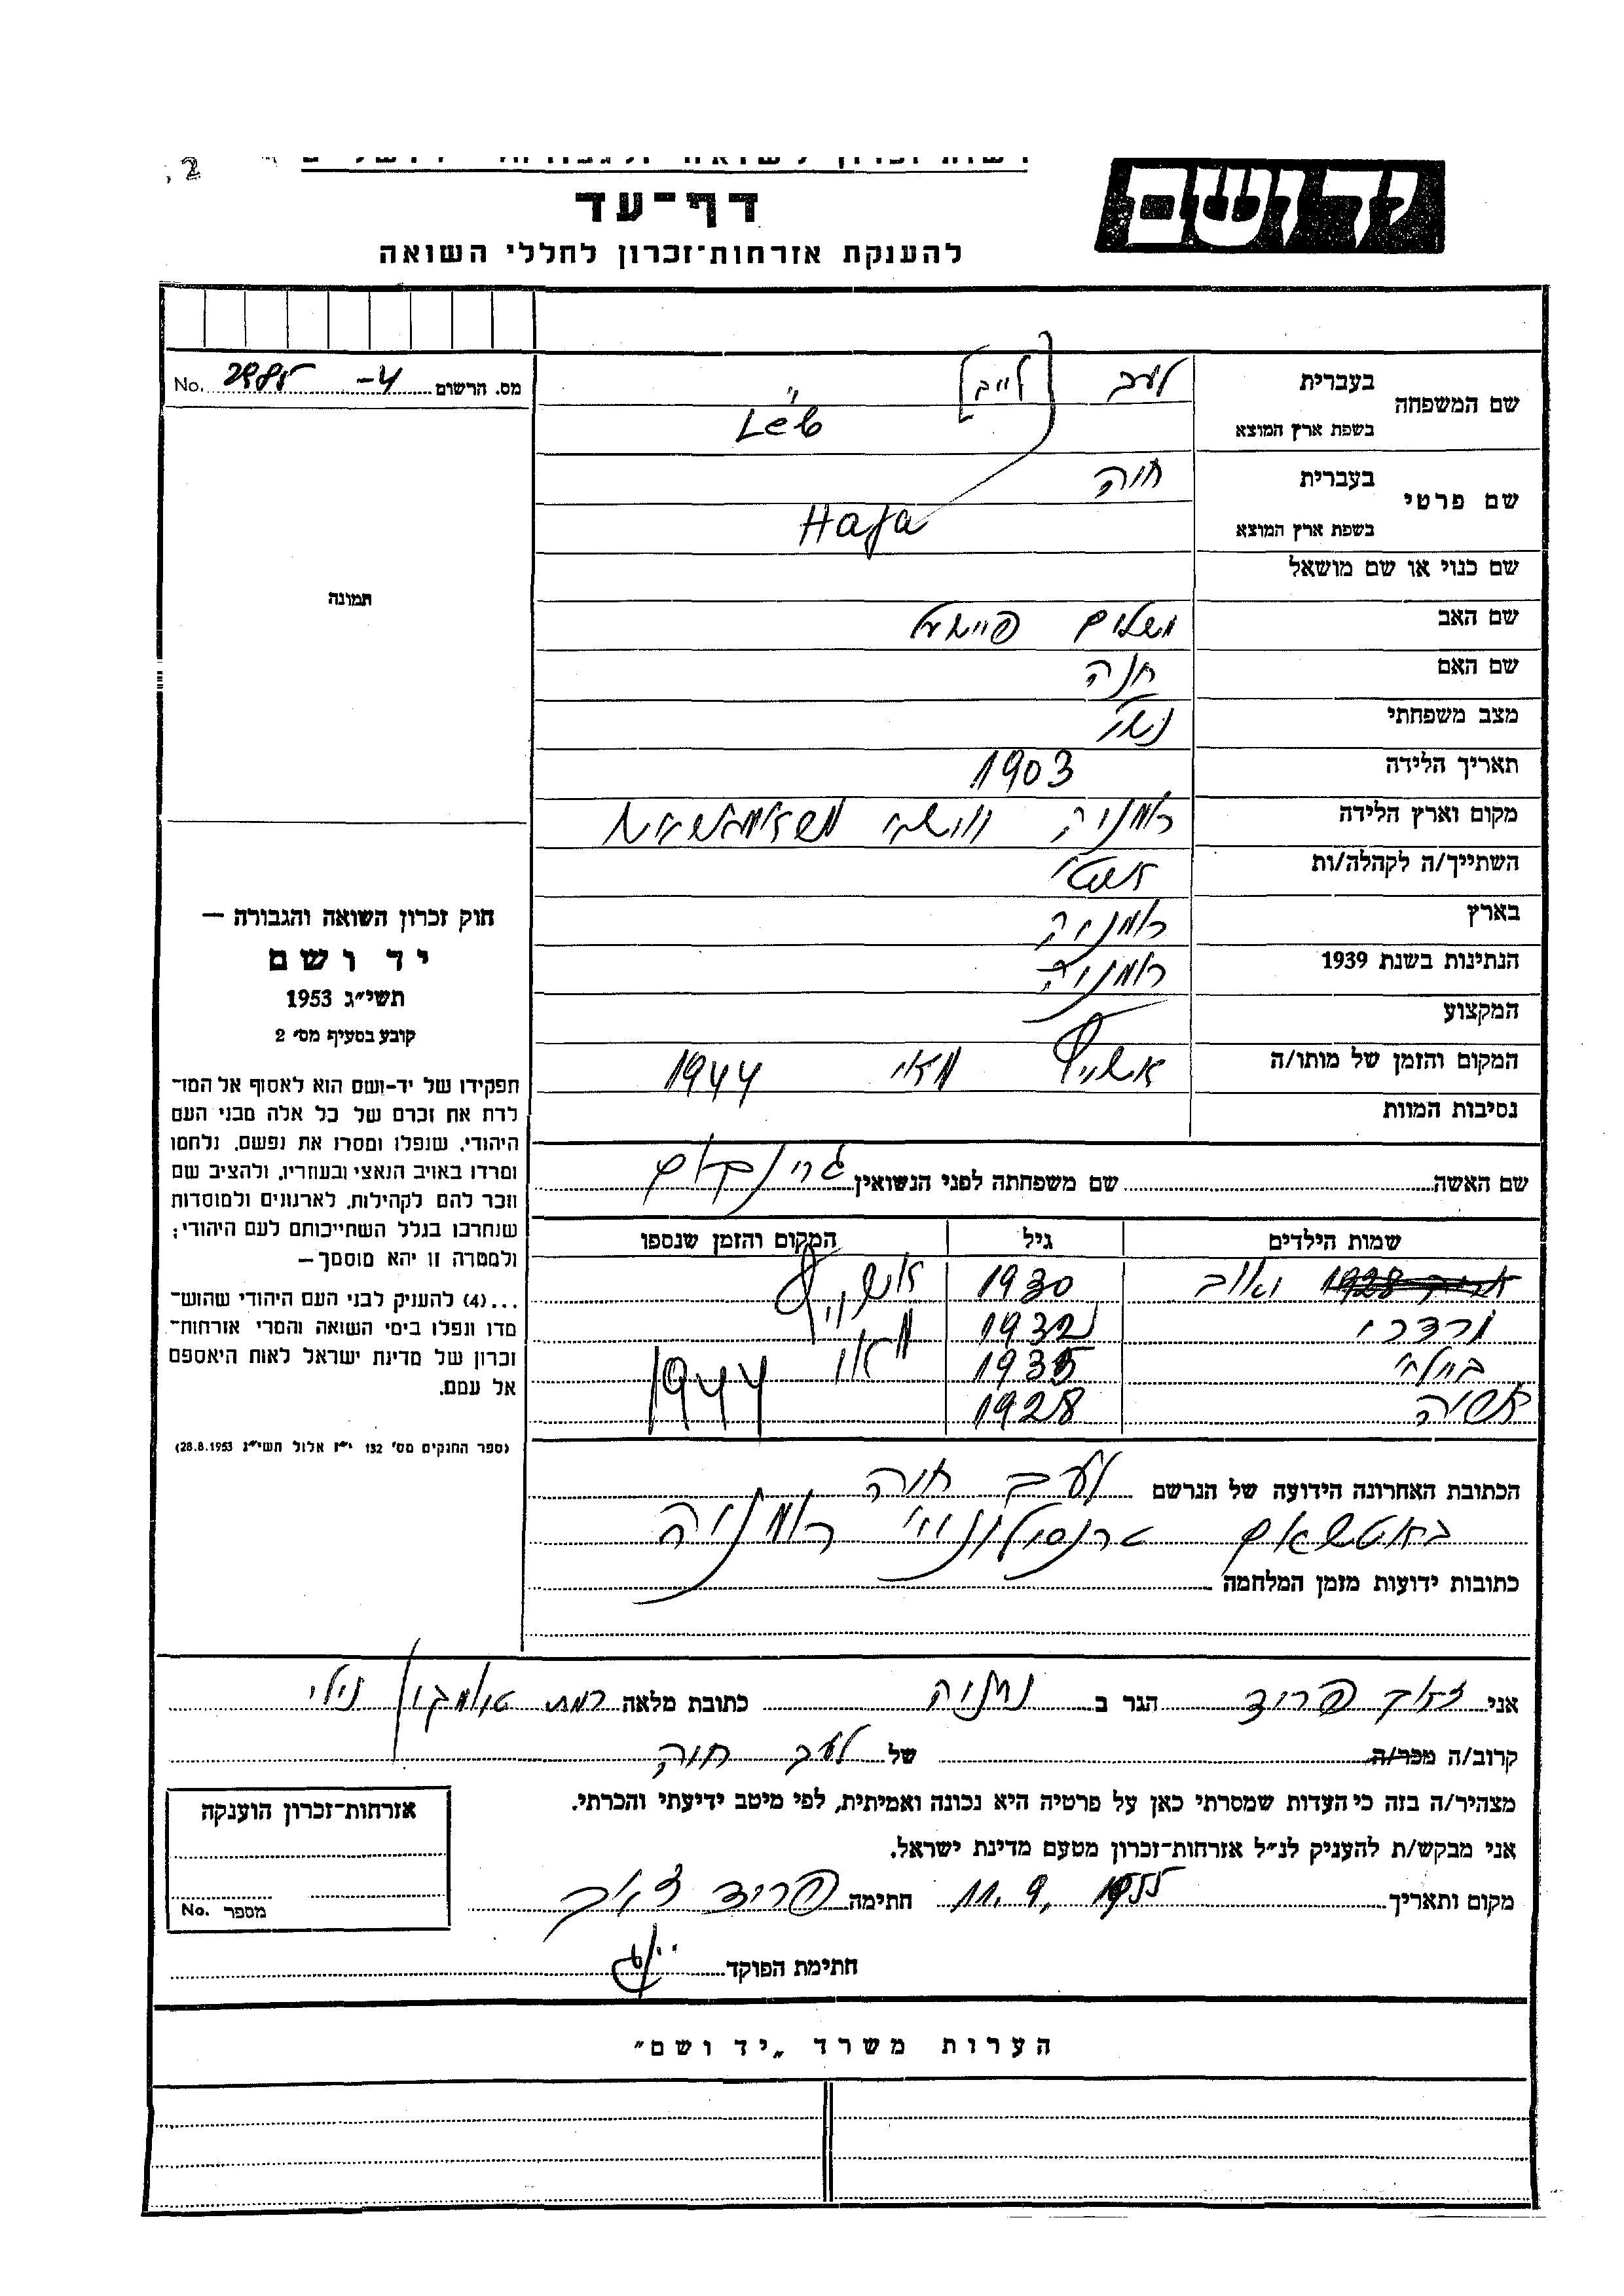 יד ושם
דף־עד
להענקת אזרחות־זכרון לחללי השואה
שם המשפחה
בעברית לעב [לייב]
בשפת ארץ המוצא Léb
שם פרטי
בעברית חוה
בשפת ארץ המוצא Haja
שם כנוי או שם מושאל
שם האב משלום
שם האם חנה
מצב משפחתי נשוי
תאריך הלידה 1903
מקום וארץ הלידה רומניה
השתייך/ה לקהלה/ות
בארץ רומניה
הנתינות בשנת 1939 רומניה
המקצוע
המקום והזמן של מותו/ה אושויץ מאי 1944
נסיבות המוות
שם האשה שם משפחתה לפני הנשואין גרינבוים
שמות הילדים גיל המקום והזמן שנספו
1930 אושויץ
1932
1935 מאי
1928 1944
הכתובת האחרונה הידועה של הנרשם לעב חוה
טרנסילווני רומניה
כתובות ידועות מזמן המלחמה
מס. הרשום 4- No.
תמונה
חוק זכרון השואה והגבורה —
יד ושם
תשי״ג 1953
קובע בסעיף מס׳ 2
תפקידו של יד-ושם הוא לאסוף אל המו־
לדת את זכרם של כל אלה מבני העם
היהודי, שנפלו ומסרו את נפשם, נלחמו
ומרדו באויב הנאצי ובעוזריו, ולהציב שם
וזכר להם לקהילות, לארגונים ולמוסדות
שנחרבו בגלל השתייכותם לעם היהודי;
ולמטרה זו יהא מוסמך—
...(4) להעניק לבני העם היהודי שהוש־
מדו ונפלו בימי השואה והמרי אזרחות־
זכרון של מדינת ישראל לאות היאספם
אל עמם.
(ספר החוקים מס׳ 132 י״ז אלול תשי״ג 28.8.1953)
אני זאב פריד הגר ב נתניה כתובת מלאה רמת טיומקין נילי
קרוב/ה מכר/ה של לעב חוה
מצהיר/ה בזה כי העדות שמסרתי כאן על פרטיה היא נכונה ואמיתית, לפי מיטב ידיעתי והכרתי.
אני מבקש/ת להעניק לנ״ל אזרחות־זכרון מטעם מדינת ישראל.
מקום ותאריך 11.9.1955 חתימה פריד זאב
חתימת הפוקד
אזרחות־זכרון הוענקה
מספר No.
הערות משרד „יד ושם״